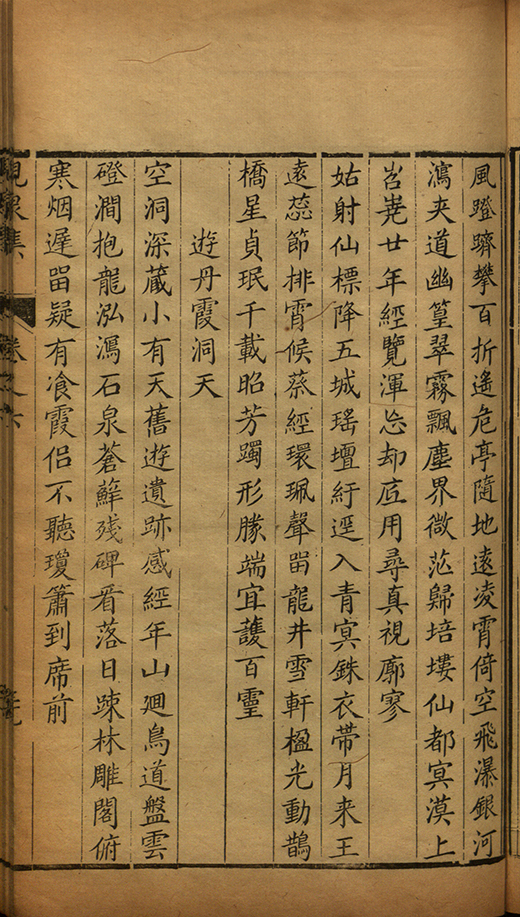 風蹬躋攀百折遙危亭隨地逺凌霄倚空飛瀑銀河
瀉夾道幽篁翠霧飄塵界微茫歸培塿仙都冥漠上
岧嶤廿年經覽渾忘却底用尋真視廓寥
姑射仙標降五城瑤壇紆逕入青冥銖衣帶月来王
逺蕊節排霄候蔡經環珮聲畱龍井雪軒楹光動鵲
橋星貞珉千載昭芳躅形勝端宜護百靈
遊丹霞洞天
空洞深蔵小有天舊遊遺跡感經年山廻鳥道盤雲
磴澗抱龍泓瀉石泉蒼蘚残碑看落日踈林雕閣俯
寒烟遲畱疑有飡霞侣不聽瓊簫到席前
卷之六